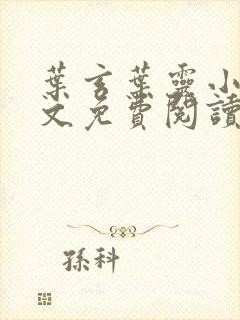 葉言葉靈小
文免費閱讀
孫科